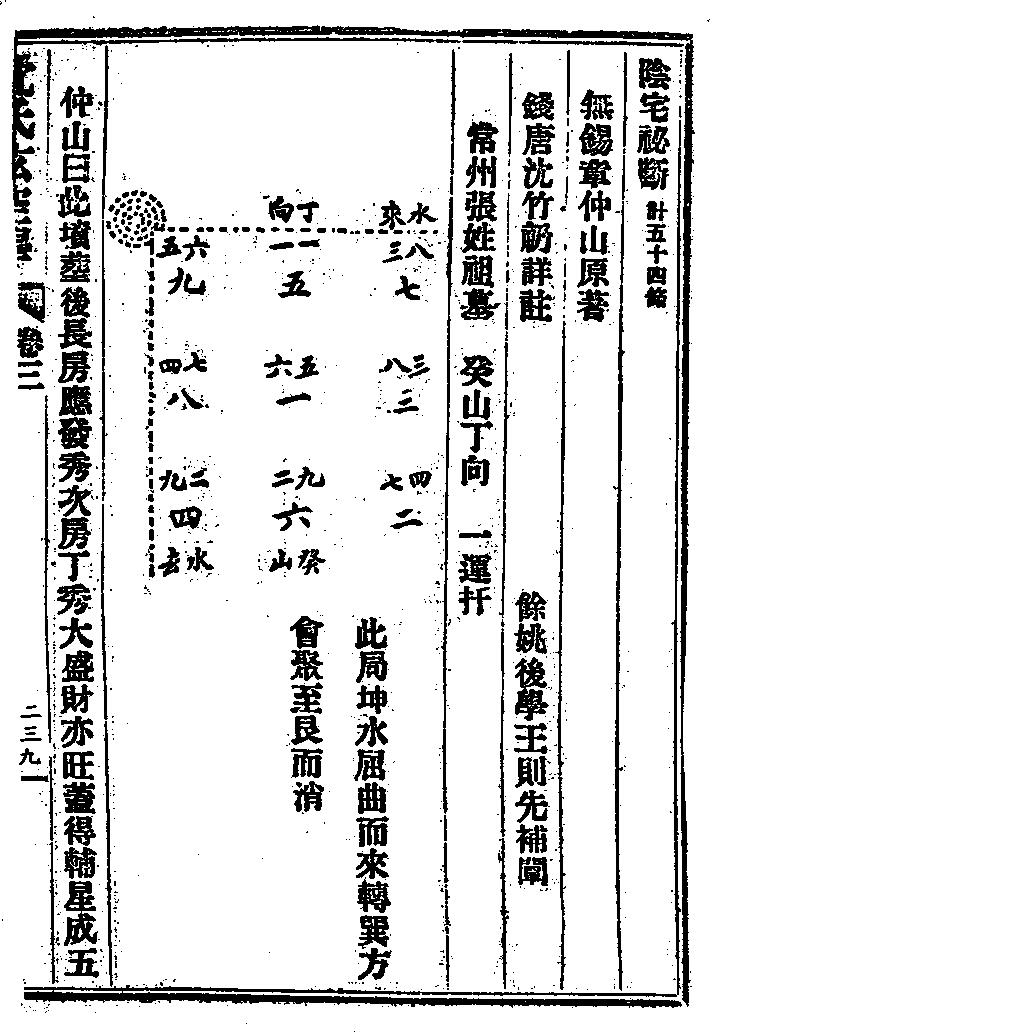 陰宅祕斷 計五十四
無錫章仲山原著
錢唐沈竹礽詳註 餘姚後學王則先補闡
常州張姓祖墓 癸山丁向 一運扦
水來 丁向
八三 一一 六五
七 五 九
三八 五六 七四
三 一 八
四七 九二 二九
二 六 四
癸山 水去
此局坤水屈曲而來轉巽方
會聚至艮而消
仲山曰此墳葬後長房應發秀次房丁秀大盛財亦旺蓋得輔星成五
卷三 二三九